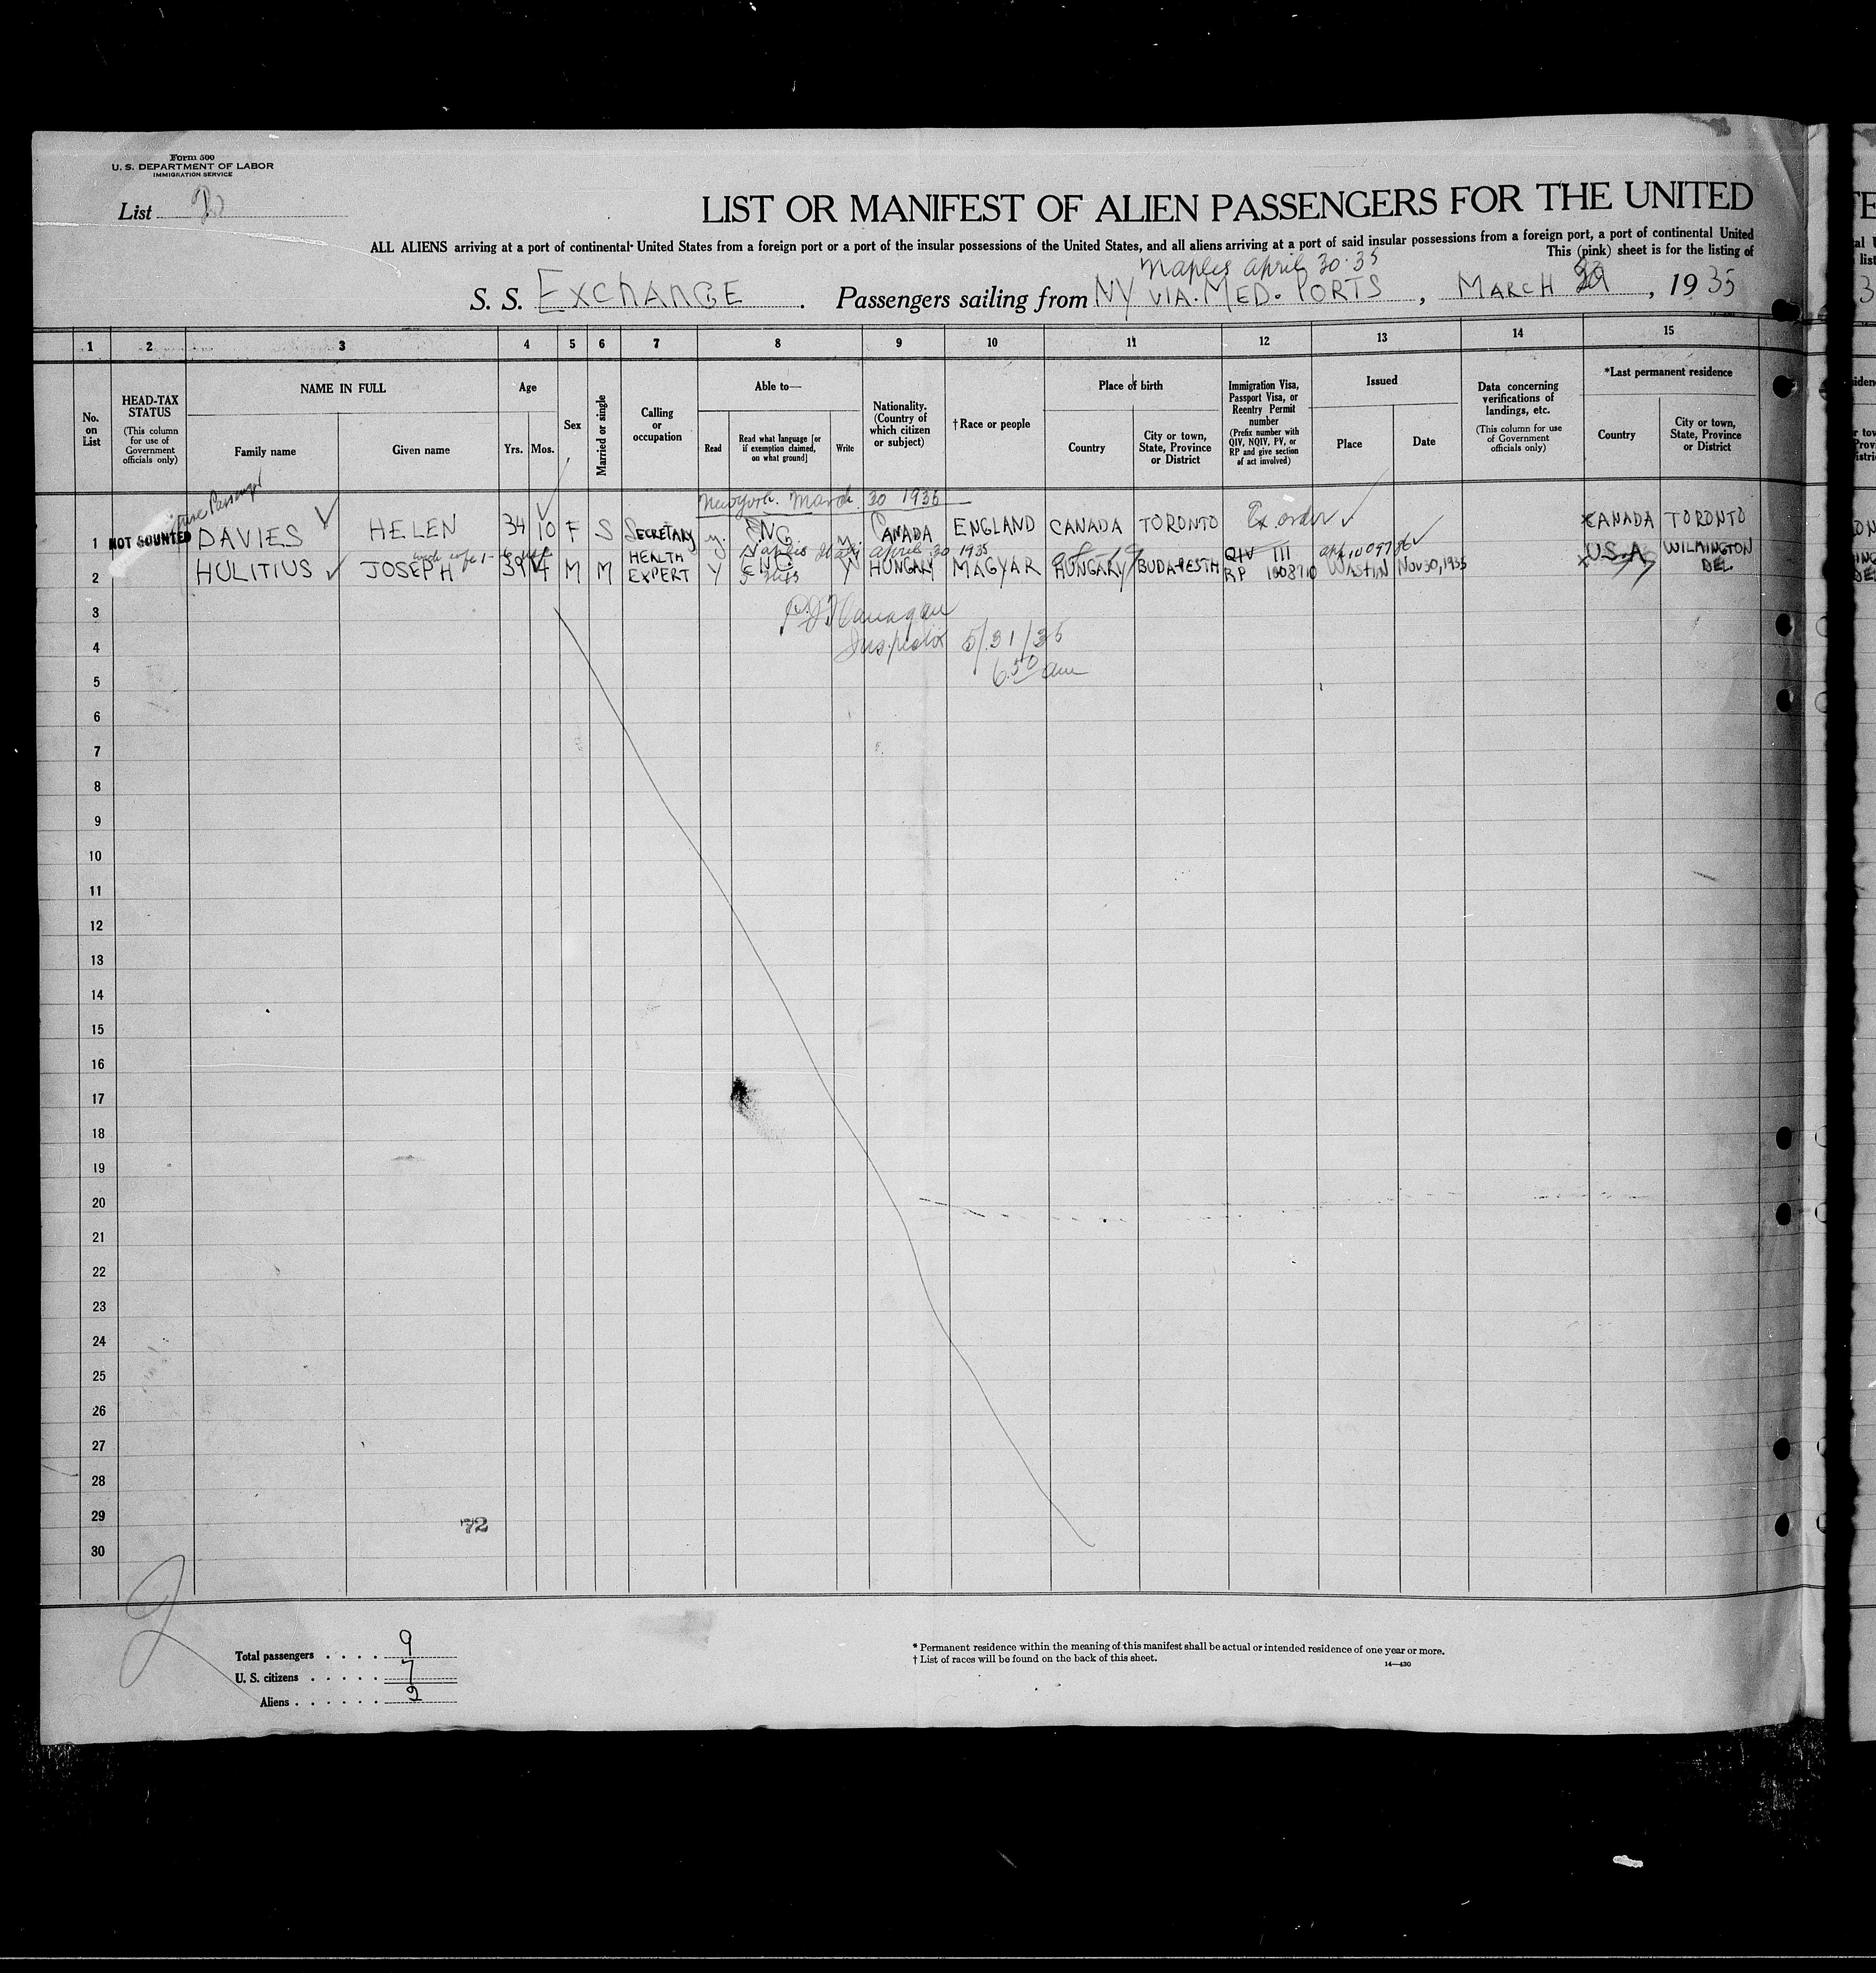 Form 500
U. S. DEPARTMENT OF LABOR
IMMIGRATION SERVICE
List
LIST OR MANIFEST OF ALIEN PASSENGERS FOR THE UNITED
ALL ALIENS arriving at a port of continental United States from a foreign port or a port of the insular possessions of the United States, and all aliens arriving at a port of said insular possessions from a foreign port, a port of continental United
This (pink) sheet is for the listing of
Naples April 30-35
S. S. EXCHANGE. Passengers sailing from NY VIA. MED. PORTS, MARCH 30, 1935
1 2 3 4 5 6 7 8 9 10 11 12 13 14 15
No. on List
HEAD-TAX STATUS
(This column for use of Government officials only)
NAME IN FULL
Family name Given name
Age
Yrs. Mos.
Sex
Married or single
Calling or occupation
Able to—
Read
Read what language [or if exemption claimed, on what ground]
Write
Nationality. (Country of which citizen or subject)
†Race or people
Place of birth
Country
City or town, State, Province or District
Immigration Visa, Passport Visa, or Reentry Permit number
(Prefix number with QIV, NQIV, PV, or RP and give section of act involved)
Issued
Place Date
Data concerning verifications of landings, etc.
(This column for use of Government officials only)
*Last permanent residence
Country
City or town, State, Province or District
Passenger
New York. March 30 1935
1 NOT COUNTED DAVIES HELEN 34 10 F S SECRETARY y. ENG y. CANADA ENGLAND CANADA TORONTO Ex. order CANADA TORONTO
Naples Italy April 30 1935
2 HULITIUS JOSEPH 39 4 M M HEALTH EXPERT Y ENG Y HUNGARY MAGYAR HUNGARY BUDAPESTH QIV III RP 1008710 WASHN Nov 30, 1935 U.S.A WILMINGTON DEL.
3
Inspector 5/31/35
4
6.50 am
5
6
7
8
9
10
11
12
13
14
15
16
17
18
19
20
21
22
23
24
25
26
27
28
29
72
30
2
Total passengers . . . . 9
U. S. citizens . . . . . 7
Aliens . . . . . . 2
* Permanent residence within the meaning of this manifest shall be actual or intended residence of one year or more.
† List of races will be found on the back of this sheet.
14—430